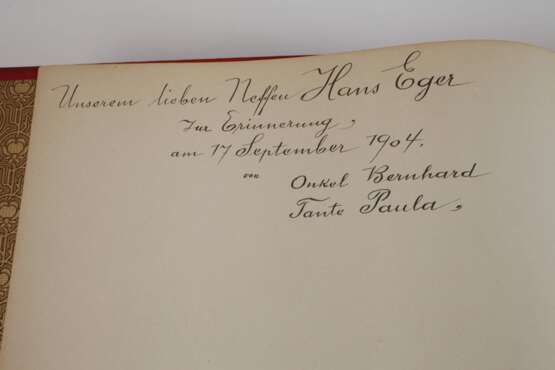 Unserem lieben Neffen Hans Eger
Zur Erinnerung,
am 17 September 1904.
von Onkel Bernhard
Tante Paula,